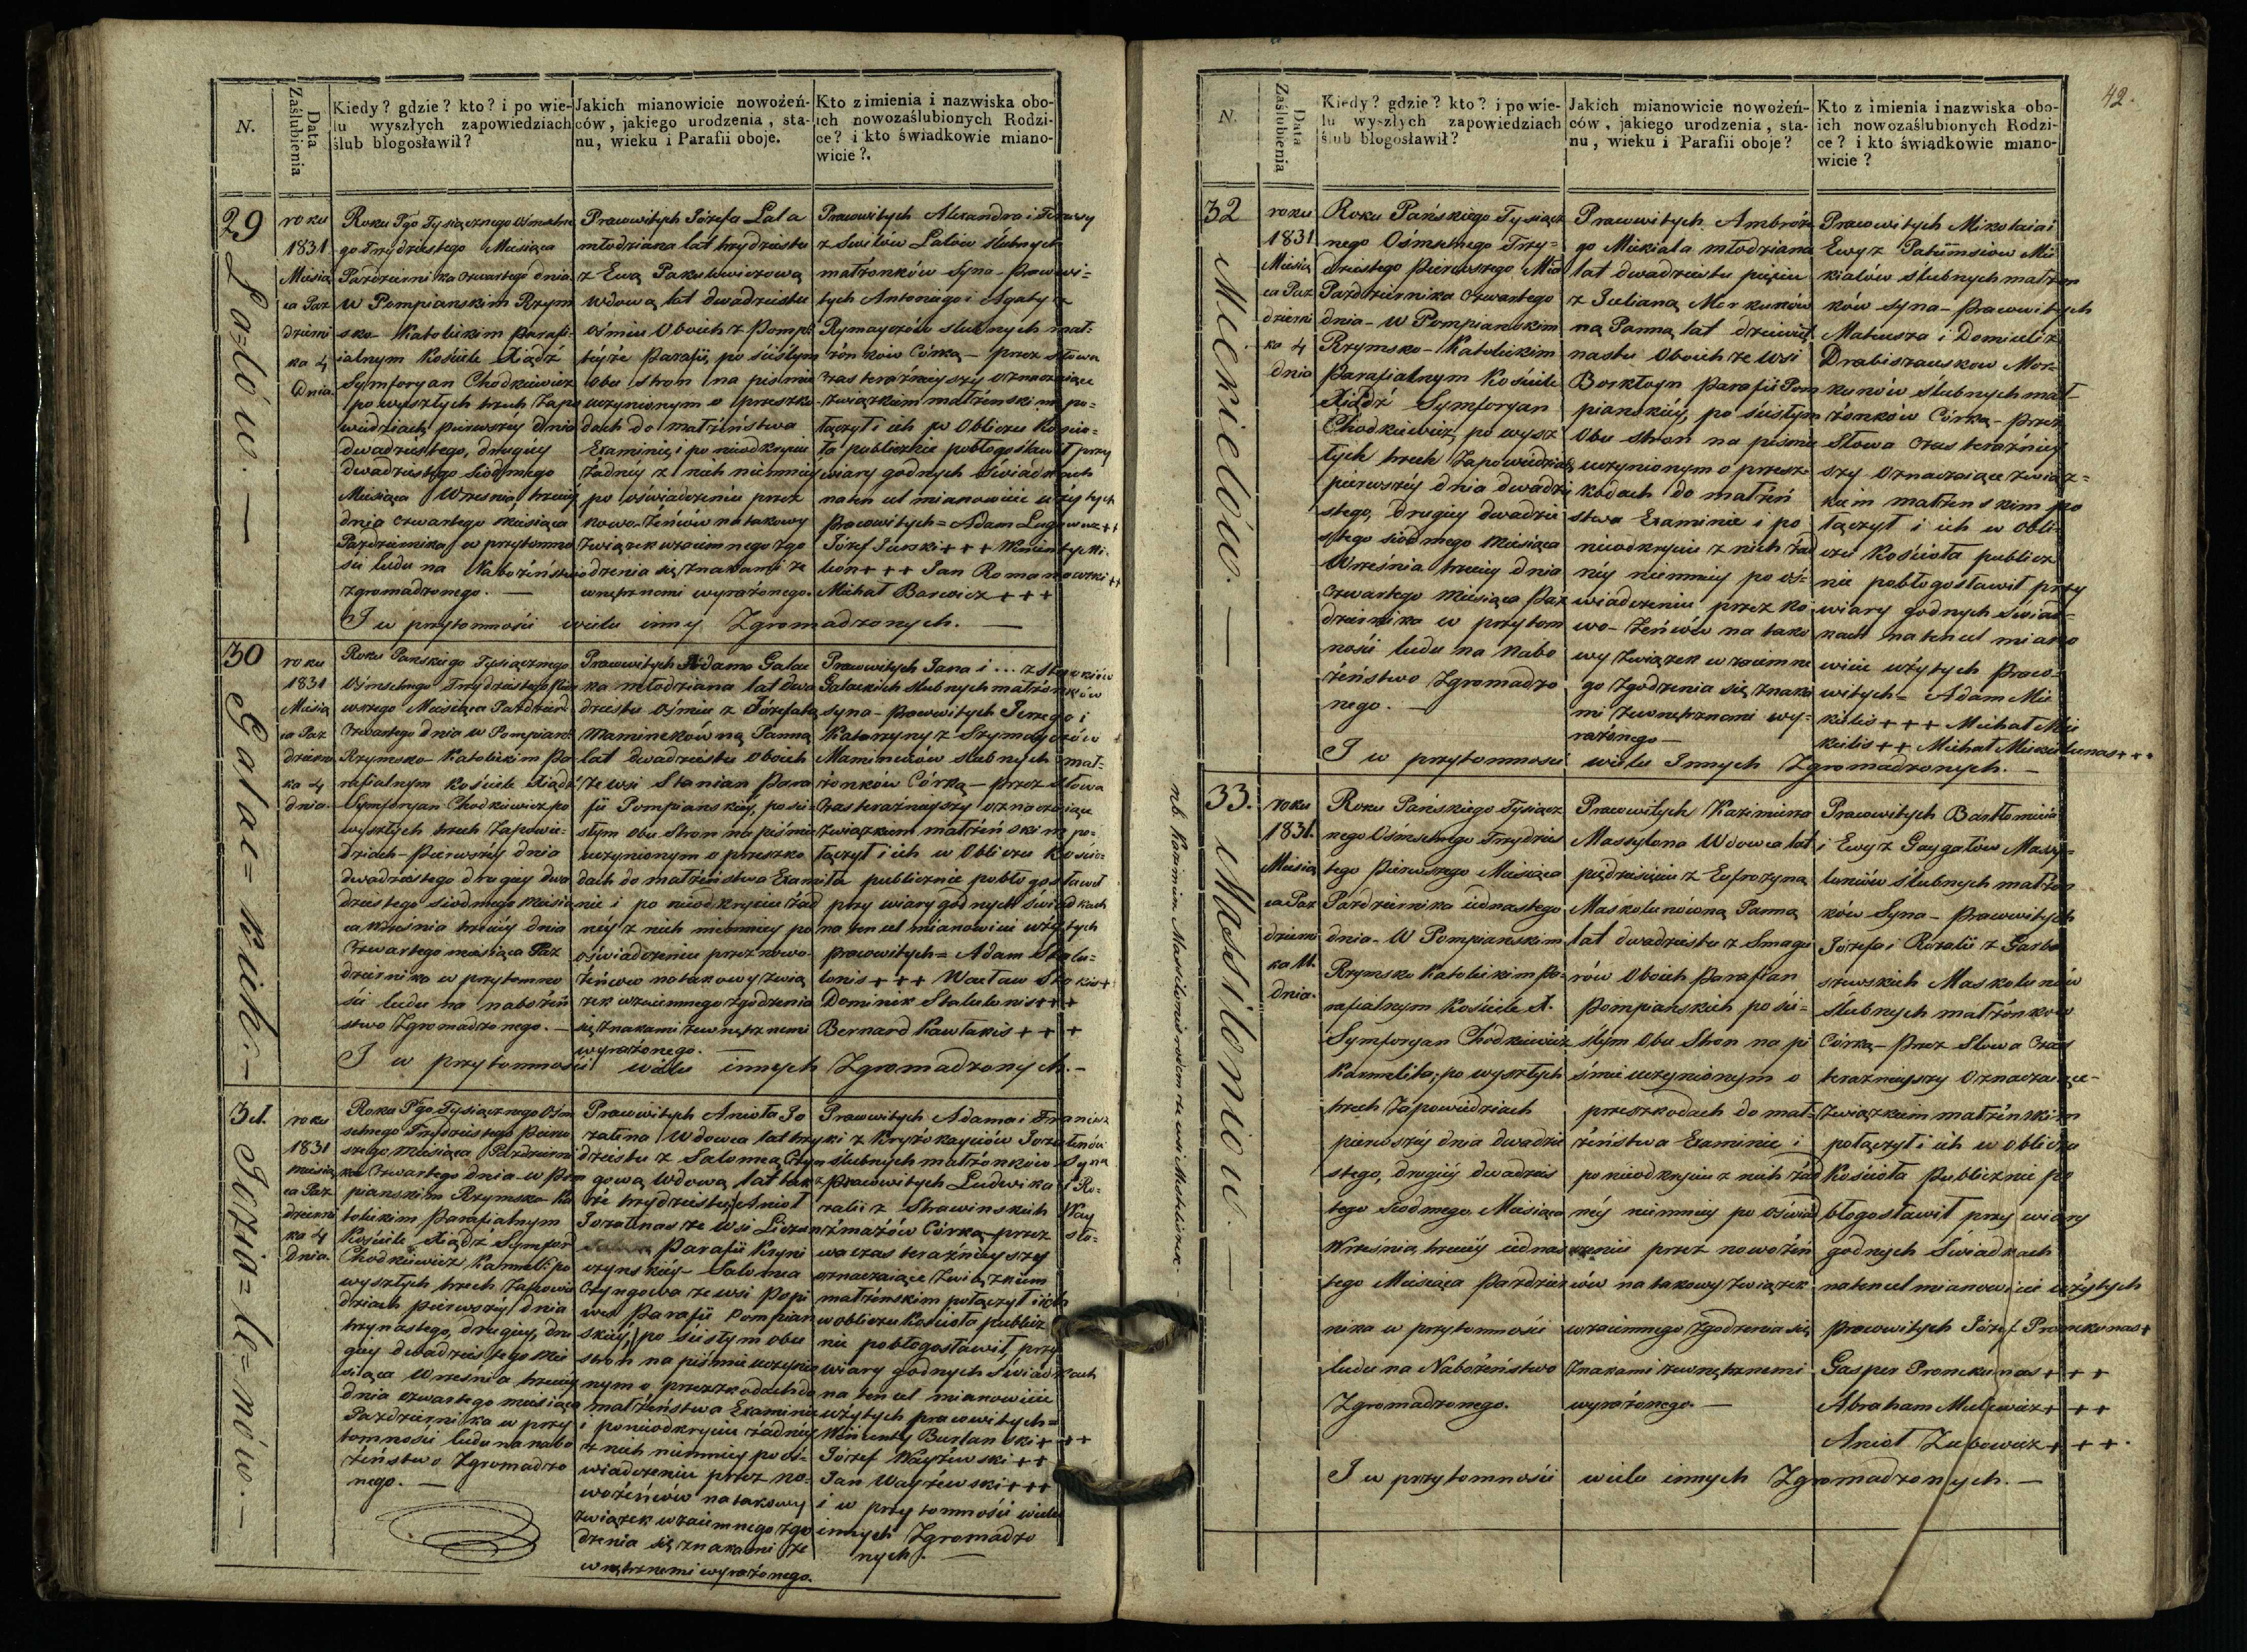 N.
Data
Zaślubienia
Kiedy? gdzie? kto? i po wie-
lu wyszłych zapowiedziach
ślub błogosławił?
Jakich mianowicie nowożeń-
ców, jakiego urodzenia, sta-
nu, wieku i Parafii oboje.
Kto z imienia i nazwiska obo-
ich nowozaślubionych Rodzi-
ce? i kto świadkowie miano-
wicie?
29
roku
1831
Miesią
ca Paź
dzierni
ka 4
Dnia.
Roku Pgo Tysiącznego Ośmsetne
go Trzydziestego Miesiąca
Pazdziernika czwartego dnia
w Pompianskim Rzym
sko Katolickim Parafi-
ialnym Kościele Xiądz
Symforyan Chodkiewicz
po wyszłych trzech Zapo
wiedziach, pierwszéy dnia
dwadziestego, drugiéy
dwadziestego siodmego
Miesiąca Wrzesnia, trzeciéy
dnia czwartego Miesiąca
Pazdziernika w przytomno
ści ludu na Nabożeństwo
zgromadzonego. —
Pracowitych Józefa Lala
młodziana lat trzydziestu
z Ewą Pakulewiczową
Wdową lat dwadziestu
ośmiu Oboich z Pomp:
teyże Parafii, po ścisłym
obu stron na piśmie
uczynionym o przeszko
dach do małżeństwa
Examinie i po nieodkryciu
żadnéy z nich niemniéy
po oświadczeniu przez
nowo-Żeńców na takowy
Związek wzaiemnego zgo
dzenia się znakami ze
wnętrznemi wyrażonego.
Pracowitych Alexandra i Teresy
z Swilów Lalów ślubnych
małżonków Syna - Pracowi-
tych Antoniego i Agaty z
Rymayczów ślubnych mał-
żonków Córką - przez słowa
czas teraźnieyszy oznaczaiące
związkiem małżenskim po-
łączył i ich w Obliczu Kościo-
ła publicznie pobłogosławił przy
wiary godnych Świadkach
na ten cel mianowicie użytych
Pracowitych = Adam Lugiewicz ++
Michał Barewicz +++
I w przytomności wielu inny Zgromadzonych. —
Lalów. —
30
roku
1831
Miesią
ca Paz
dzierni
ka 4
dnia.
Roku Panskiego Tysiącznego
Ośmsetnego Trzydziestego Pier
wszego Miesiąca Pazdzierni
czwartego dnia w Pompians
Rzymsko-Katolickim Pa
rafialnym Kościele Xiądz
Symforyan Chodkiewicz po
wyszłych trzech Zapowie-
dziach - Pierwszéy dnia
dwadziestego drugiéy dwa
dziestego siodmego Miesią
ca Września trzeciéy dnia
Czwartego miesiąca Paz
dziernika w przytomno
ści ludu na nabożeń
stwo Zgromadzonego. —
Pracowitych Adama Galac
ka młodziana lat dwa
dziestu ośmiu z Józefatą
Maminekówną Panną
lat dwadziestu Oboich
ze wsi Stanian Para
fii Pompianskiéy, po ści-
słym Obu Stron na piśmie
uczynionym o przeszko
dach do małżeństwa Exami
nie i po nieodkryciu żad
néy z nich niemniéy po
oświadczeniu przez nowo-
żeńców na takowy zwią
zek wzaiemnego zgodzenia
się znakami zewnętrznemi
wyrażonego.
Pracowitych Jana i ...
Galackich ślubnych małżonków
syna - Pracowitych Jerzego i
Katarzyny z Szymayczów
Maminekow ślubnych mał-
żonków Córką - przez Słowa
Czas teraźnieyszy oznaczaiące
związkiem małżeńskim po-
łączył i ich w Obliczu Kościo-
ła publicznie pobłogosławił
przy wiary godnych świadkach
na ten cel mianowicie użytych
pracowitych = Adam Stalu-
lonis +++ Wacław
Dominik Stalulonis +++
Bernard Kawlakis +++
I w przytomności wielu innych Zgromadzonych. —
Galac=kich. —
31.
roku
1831
miesią
ca Paz
dzierni
ka 4
dnia.
Roku Pgo Tysiącznego Ośm
setnego Trzydziestego Pierw
szego miesiąca Pazdzierni
ka Czwartego dnia w Pom
pianskim Rzymsko Ka
tolickim Parafialnym
Kościele Xiądz Symfor
Chodkiewicz Karmeli: po
wyszłych trzech Zapowie
dziach pierwszéy dnia
trzynastego, drugiéy, dru
giey dwadziestego Mie
siąca Wrzesnia trzeciéy
dnia czwartego miesiąca
Pazdziernika w przy
tomności ludu na nabo
żeństwo Zgromadzo
nego. —
Pracowitych Anioła Jo
zalena Wdowca lat trzy
dziestu z Salomeą Czyn
gową Wdową, lat tak
że trzydziestu Anioł
Jozalinas ze wsi
Parafii Kryni
czynskiéy - Salomea
Czyngowa ze wsi Popi
wes Parafii Pompian
skiéy, po ścisłym obu
stron na piśmie uczynio
nym o przeszkodach do
małżeństwa Examinie
i ponieodkryciu żadnéy
z nich niemniéy po oś-
wiadczeniu przez no-
wożeńców na takowy
związek wzaiemnego zgo
dzenia się znakami ze
wnętrznemi wyrażonego.
Pracowitych Adama i Francisz
ki z Kryżokayciów Jozalenów
ślubnych małżonków Syna
z Pracowitych Ludwika i Ro-
zalii z Strawinskich Way
Córką - przez sło-
wa czas teraźnieyszy
oznaczaiące Związkiem
małżenskim połączył i ich
w obliczu Kościoła publicz
nie pobłogosławił, przy
wiary godnych Świadkach
na ten cel mianowicie
użytych pracowitych =
Wincenty Burlanski +++
Józef Wayżewski ++
Jan Wayżewski +++
i w przytomności wielu
innych Zgromadzo
nych. —
Jozia=le=nów. —
42.
N.
Data
Zaślubienia
Kiedy? gdzie? kto? i po wie-
lu wyszłych zapowiedziach
ślub błogosławił?
Jakich mianowicie nowożeń-
ców, jakiego urodzenia, sta-
nu, wieku i Parafii oboje?
Kto z imienia i nazwiska obo-
ich nowozaślubionych Rodzi-
ce? i kto świadkowie miano-
wicie?
32
roku
1831
Miesią
ca Paz
dzierni
ka 4
dnia
Roku Pańskiego Tysiącz
nego Ośmsetnego Trzy=
dziestego Pierwszego Mca
Pazdziernika czwartego
dnia - w Pompianskim
Rzymsko-Katolickim
Parafialnym Kościele
Xiądz Symforyan
Chodkiewicz, po wysz
łych trzech Zapowiedziach
pierwszéy dnia dwadzie
stego, drugiéy dwadzie
stego siodmego Miesiąca
Września trzeciéy dnia
czwartego Miesiąca Paz
dziernika w przytom
ności ludu na Nabo
żeństwo Zgromadzo
nego. —
Pracowitych Ambroże
go Mikiala młodziana
lat dwadziestu pięciu
z Julianą Morkunów
ną Panną lat dziewięt
nastu Oboich ze wsi
Borkłoyn Parafii Pom
pianskiéy, po ścisłym
Obu Stron na piśmie
uczynionym o przesz
kodach do małżeń
stwa Examinie i po
nieodkryciu z nich żad
néy niemniéy po oś-
wiadczeniu przez no
wo-żeńców na tako
wy Związek wzaiemne
go Zgodzenia się znaka
mi Zewnętrznemi wy-
rażonego —
Pracowitych Mikołaia i
kialów ślubnych małżon
ków syna - pracowitych
Mateusza i Domiceli z
Drabiszauskow Mor-
kunów ślubnych mał-
żonków Córką - przez
Słowa czas teraźniey
szy oznaczaiące związ=
kiem małżenskim po
łączył i ich w Obli-
czu Kościoła publicz
nie pobłogosławił przy
wiary godnych świad-
kach na ten cel miano
wicie użytych Praco-
witych = Adam Mi
kielis +++ Michał Mi
kielis ++ Michał
I w przytomności wielu Innych Zgromadzonych. —
Mikielów. —
33.
roku
1831.
Miesią
ca Paz
dzierni
ka 11.
dnia.
Roku Pańskiego Tysiącz
nego Ośmsetnego Trzydzies
tego Pierwszego Miesiąca
Pazdziernika iednastego
dnia - W Pompianskim
Rzymsko Katolickim Pa-
rafialnym Kościele X.
Symforyan Chodkiewicz
Karmelita, po wyszłych
trzech Zapowiedziach
pierwszéy dnia dwadzie
stego, drugiéy dwadzies
tego siodmego Miesiąca
Wrześnią, trzeciéy iednas
tego Miesiąca Pazdzier
nika w przytomności
ludu na Nabożeństwo
Zgromadzonego.
Pracowitych Kazimierza
Massylona Wdowca lat
piędziesięciu z Eufrozyną
Maskolunówną Panną
lat dwadziestu z Smagu
rów Oboich Parafian
Pompianskich po ści=
słym Obu Stron na pi
śmie uczynionym o
przeszkodach do mał-
żeństwa Examinie i
po nieodkryciu z nich żad
néy niemniéy po oświad
czeniu przez nowożeń
ców na takowy związek
wzaiemnego Zgodzenia się
Znakami zewnętrznemi
wyrażonego. —
Pracowitych Bartłomieia
i Ewy z Gaygałów Massy-
lonów ślubnych małżon
ków Syna - Pracowitych
Józefa i Rozalii z Garba
szewskich Maskolunów
ślubnych małżonków
Córką - Przez Słowa Czas
teraznieyszy Oznaczaiące-
Związkiem małżenskim
połączył i ich w obliczu
Kościoła Publicznie po
błogosławił przy wiary
godnych Świadkach
na ten cel mianowicie użytych
pracowitych Józef Promckunas +
Gasper Promckunas +++
Abraham Mulewicz +++
Anioł Zubowicz +++.
I w przytomności wielu innych Zgromadzonych. —
Massilonow. —
nb. Kazimierz Massilonis rodem ze wsi